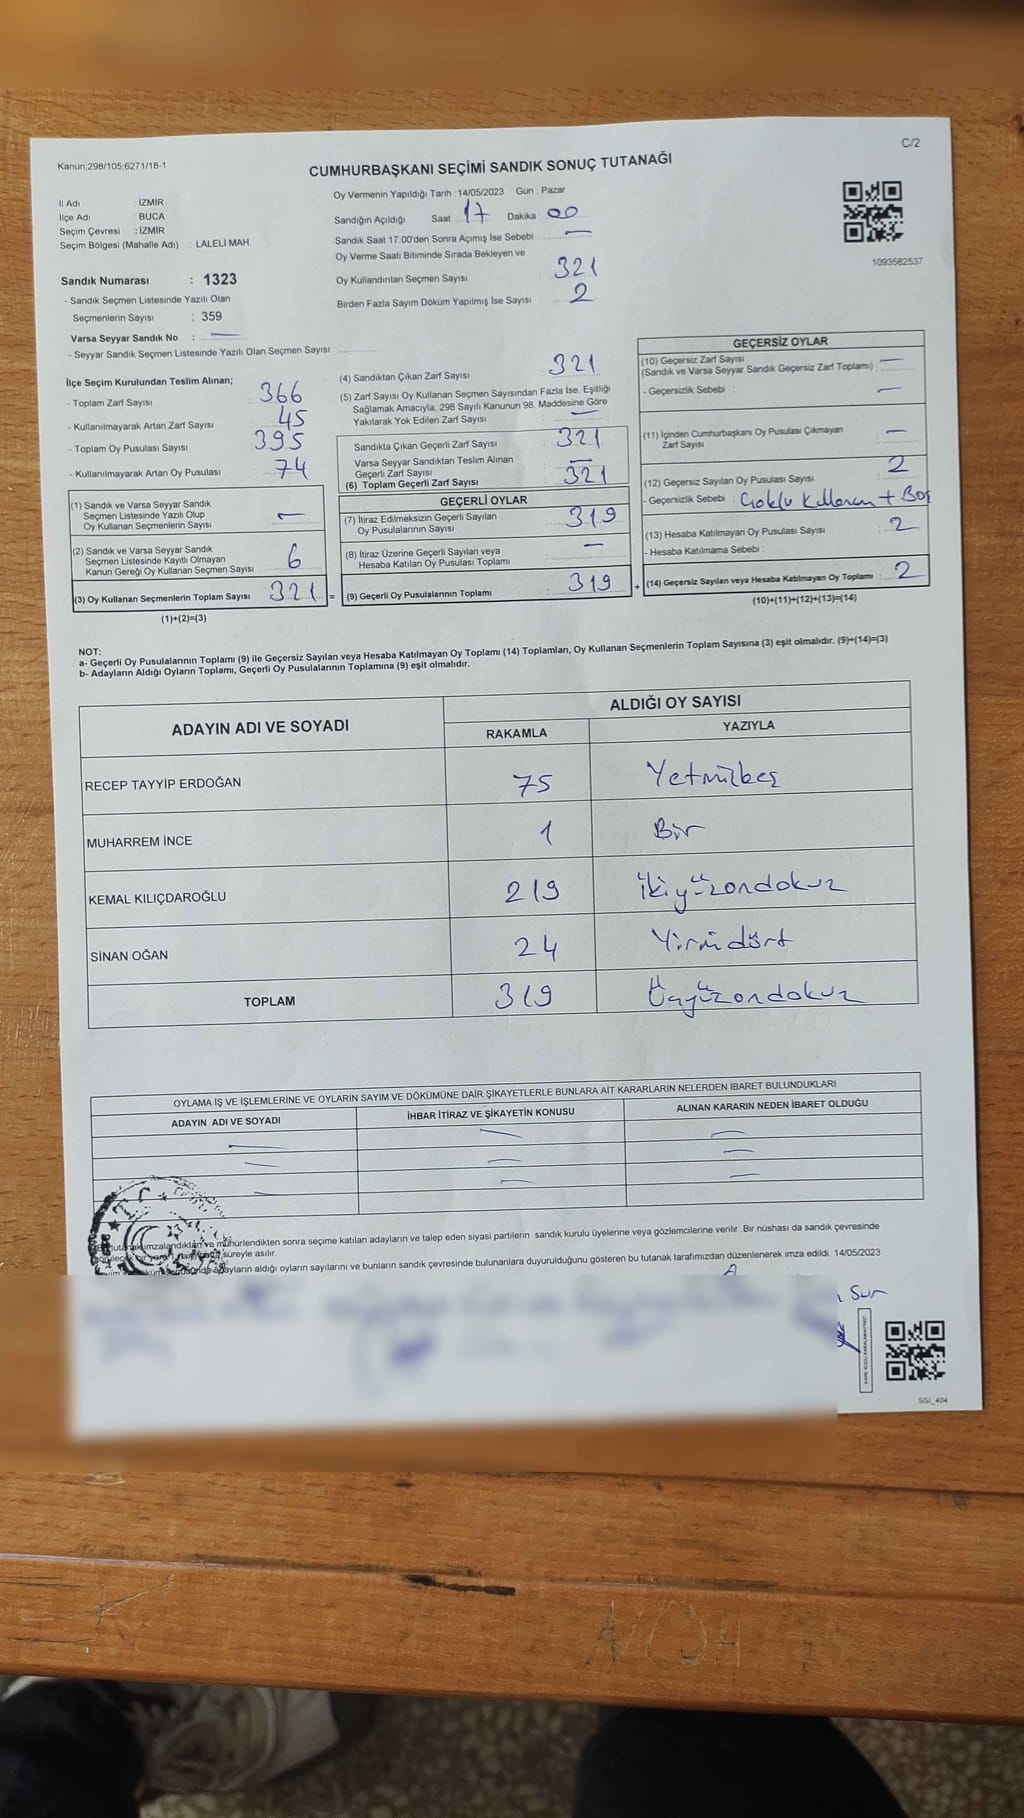 C/2
Kanun:298/105;6271/18-1
CUMHURBAŞKANI SEÇİMİ SANDIK SONUÇ TUTANAĞI
İl Adı : İZMİR
İlçe Adı : BUCA
Seçim Çevresi : İZMİR
Seçim Bölgesi (Mahalle Adı) : LALELİ MAH.
Oy Vermenin Yapıldığı Tarih :14/05/2023 Gün : Pazar
Sandığın Açıldığı Saat : 17 Dakika : 00
Sandık Saat 17:00'den Sonra Açımış İse Sebebi : —
Oy Verme Saati Bitiminde Sırada Bekleyen ve
Oy Kullandırılan Seçmen Sayısı : 321
Birden Fazla Sayım Döküm Yapılmış İse Sayısı : 2
1093582537
Sandık Numarası : 1323
- Sandık Seçmen Listesinde Yazılı Olan
Seçmenlerin Sayısı : 359
Varsa Seyyar Sandık No : —
- Seyyar Sandık Seçmen Listesinde Yazılı Olan Seçmen Sayısı:
İlçe Seçim Kurulundan Teslim Alınan;
- Toplam Zarf Sayısı : 366
- Kullanılmayarak Artan Zarf Sayısı : 45
- Toplam Oy Pusulası Sayısı : 395
- Kullanılmayarak Artan Oy Pusulası : 74
(1) Sandık ve Varsa Seyyar Sandık
Seçmen Listesinde Yazılı Olup
Oy Kullanan Seçmenlerin Sayısı : —
(2) Sandık ve Varsa Seyyar Sandık
Seçmen Listesinde Kayıtlı Olmayan
Kanun Gereği Oy Kullanan Seçmen Sayısı : 6
(3) Oy Kullanan Seçmenlerin Toplam Sayısı : 321 =
(1)+(2)=(3)
(4) Sandıktan Çıkan Zarf Sayısı : 321
(5) Zarf Sayısı Oy Kullanan Seçmen Sayısından Fazla İse, Eşitliği
Sağlamak Amacıyla, 298 Sayılı Kanunun 98. Maddesine Göre
Yakılarak Yok Edilen Zarf Sayısı : —
Sandıkta Çıkan Geçerli Zarf Sayısı : 321
Varsa Seyyar Sandıktan Teslim Alınan
Geçerli Zarf Sayısı : —
(6) Toplam Geçerli Zarf Sayısı : 321
GEÇERLİ OYLAR
(7) İtiraz Edilmeksizin Geçerli Sayılan
Oy Pusulalarının Sayısı : 319
(8) İtiraz Üzerine Geçerli Sayılan veya
Hesaba Katılan Oy Pusulası Toplamı : —
(9) Geçerli Oy Pusulalarının Toplamı : 319 +
GEÇERSİZ OYLAR
(10) Geçersiz Zarf Sayısı
(Sandık ve Varsa Seyyar Sandık Geçersiz Zarf Toplamı) : —
- Geçersizlik Sebebi : —
(11) İçinden Cumhurbaşkanı Oy Pusulası Çıkmayan
Zarf Sayısı : —
(12) Geçersiz Sayılan Oy Pusulası Sayısı : 2
- Geçersizlik Sebebi : Çoklu Kullanım + Boş
(13) Hesaba Katılmayan Oy Pusulası Sayısı : 2
- Hesaba Katılmama Sebebi :
(14) Geçersiz Sayılan veya Hesaba Katılmayan Oy Toplamı : 2
(10)+(11)+(12)+(13)=(14)
NOT:
a- Geçerli Oy Pusulalarının Toplamı (9) ile Geçersiz Sayılan veya Hesaba Katılmayan Oy Toplamı (14) Toplamları, Oy Kullanan Seçmenlerin Toplam Sayısına (3) eşit olmalıdır. (9)+(14)=(3)
b- Adayların Aldığı Oyların Toplamı, Geçerli Oy Pusulalarının Toplamına (9) eşit olmalıdır.
ADAYIN ADI VE SOYADI ALDIĞI OY SAYISI
RAKAMLA YAZIYLA
RECEP TAYYİP ERDOĞAN 75 Yetmişbeş
MUHARREM İNCE 1 Bir
KEMAL KILIÇDAROĞLU 219 İkiyüzondokuz
SİNAN OĞAN 24 Yirmidört
TOPLAM 319 Üçyüzondokuz
OYLAMA İŞ VE İŞLEMLERİNE VE OYLARIN SAYIM VE DÖKÜMÜNE DAİR ŞİKAYETLERLE BUNLARA AİT KARARLARIN NELERDEN İBARET BULUNDUKLARI
ADAYIN ADI VE SOYADI İHBAR İTİRAZ VE ŞİKAYETİN KONUSU ALINAN KARARIN NEDEN İBARET OLDUĞU
— — —
— — —
— — —
ve mühürlendikten sonra seçime katılan adayların ve talep eden siyasi partilerin sandık kurulu üyelerine veya gözlemcilerine verilir .Bir nüshası da sandık çevresinde
süreyle asılır.
adayların aldığı oyların sayılarını ve bunların sandık çevresinde bulunanlara duyurulduğunu gösteren bu tutanak tarafımızdan düzenlenerek imza edildi. 14/05/2023
Sur
SSI_404
NOH